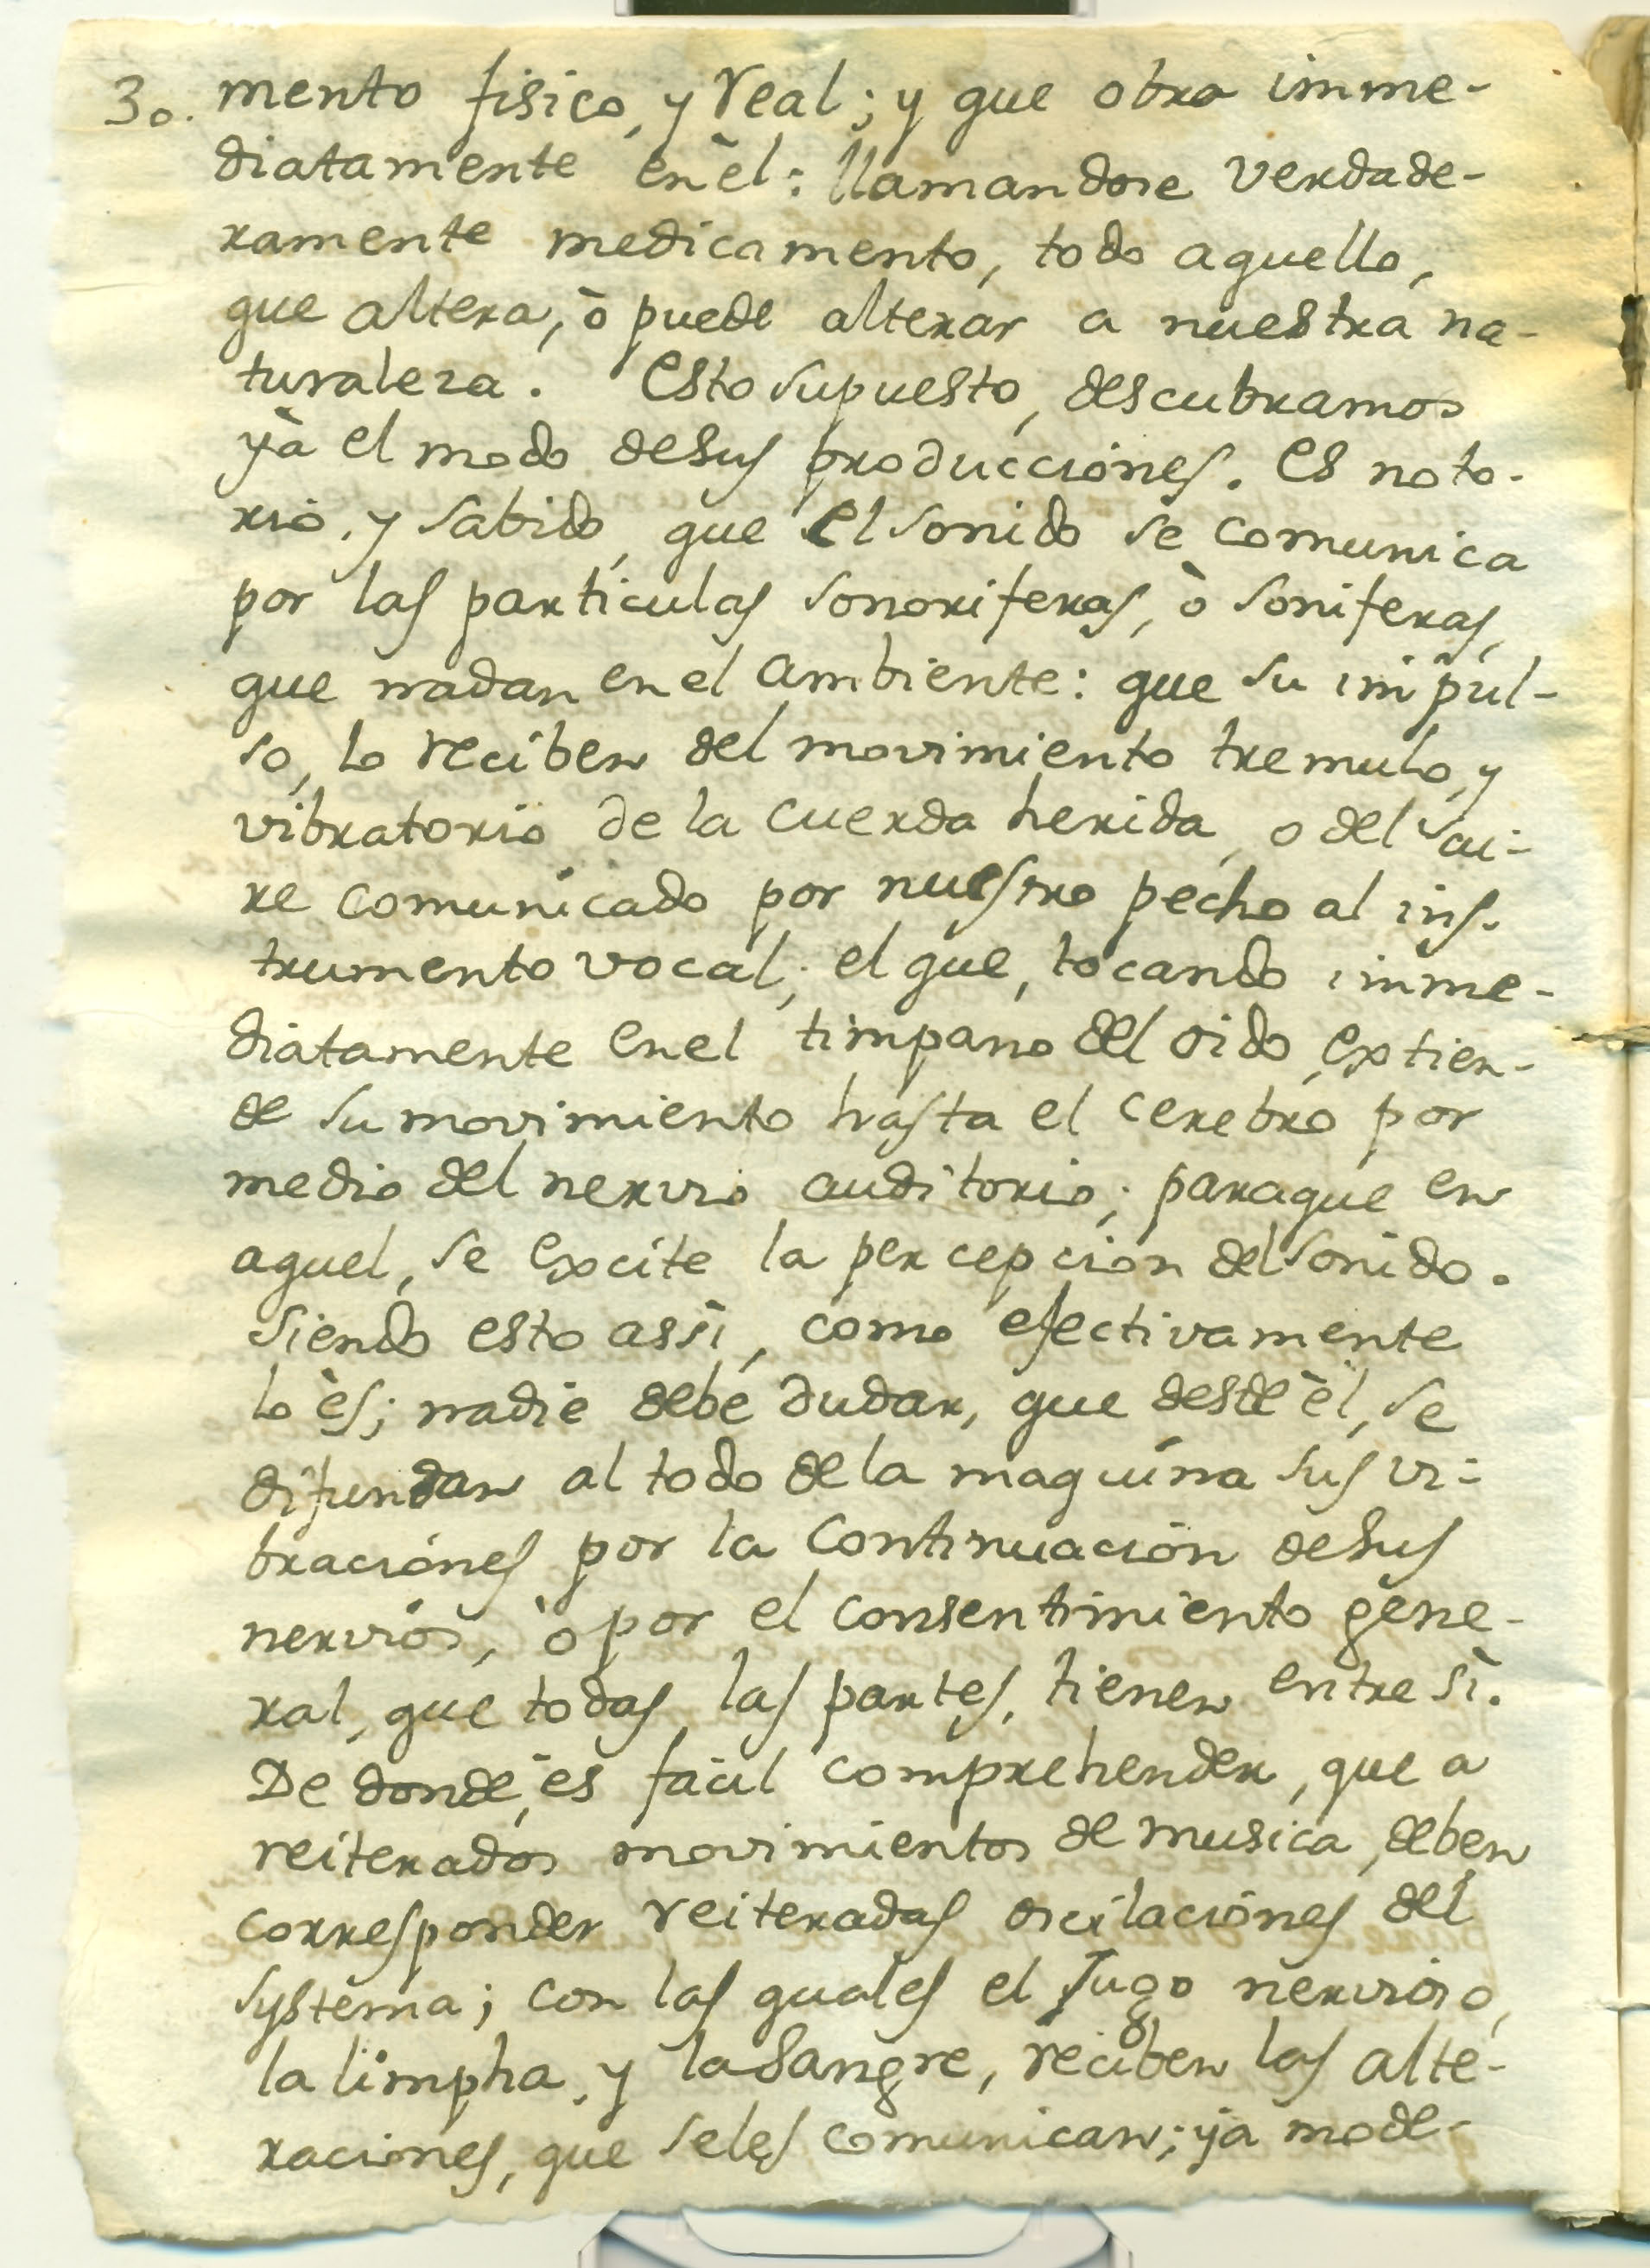 30. mento fisico, y real; y que obra imme-
diatamente en èl: llamandose verdade-
ramente medicamento, todo aquello,
que altera, ò puede alterar a nuestra na-
turaleza. Esto supuesto, descubramos
yà el modo desus producciones. Es noto-
rio, y sabido, que el sonido se comunica
por las particulas sonoriferas, ò soniferas,
que nadan en el ambiente: que su impul-
so, lo reciben del movimiento tremulo, y
vibratorio de la cuerda herida, o del ai-
re comunicado por nuestro pecho al ins-
trumento vocal; el que, tocando imme-
diatamente en el timpano del oido, extien-
de su movimiento hasta el cerebro por
medio del nervio auditorio; paraque en
aquel, se excite la percepcion del sonido.
Siendo esto assi, como efectivamente
lo ès; nadie debe dudar, que desde èl, se
difundan al todo de la maquina sus vi-
braciones por la continuacion desus
nervios, ò por el consentimiento gene-
ral, que todas las partes, tienen entre sì.
De donde, es facil comprehender, que a
reiterados movimientos de musica, deben
corresponder reiteradas oscilaciones del
systema; con las quales el Jugo nervioso,
la limpha, y la Sangre, reciben las alte-
raciones, que seles comunican; ya mode-